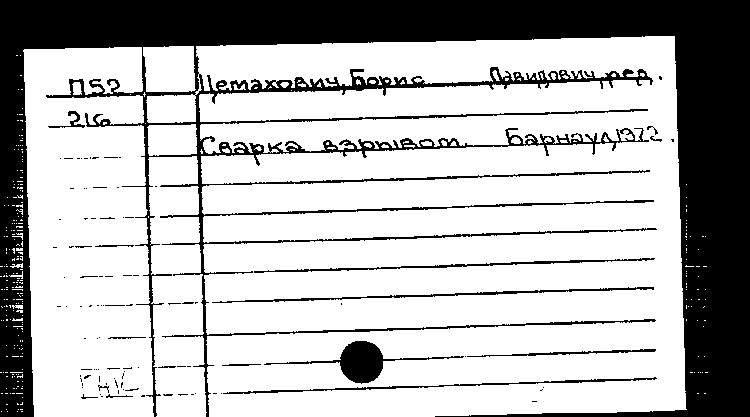 П52 Цемахович, Борис Давидович, ред.
216
Сварка взрывом. Барнаул, 1972.